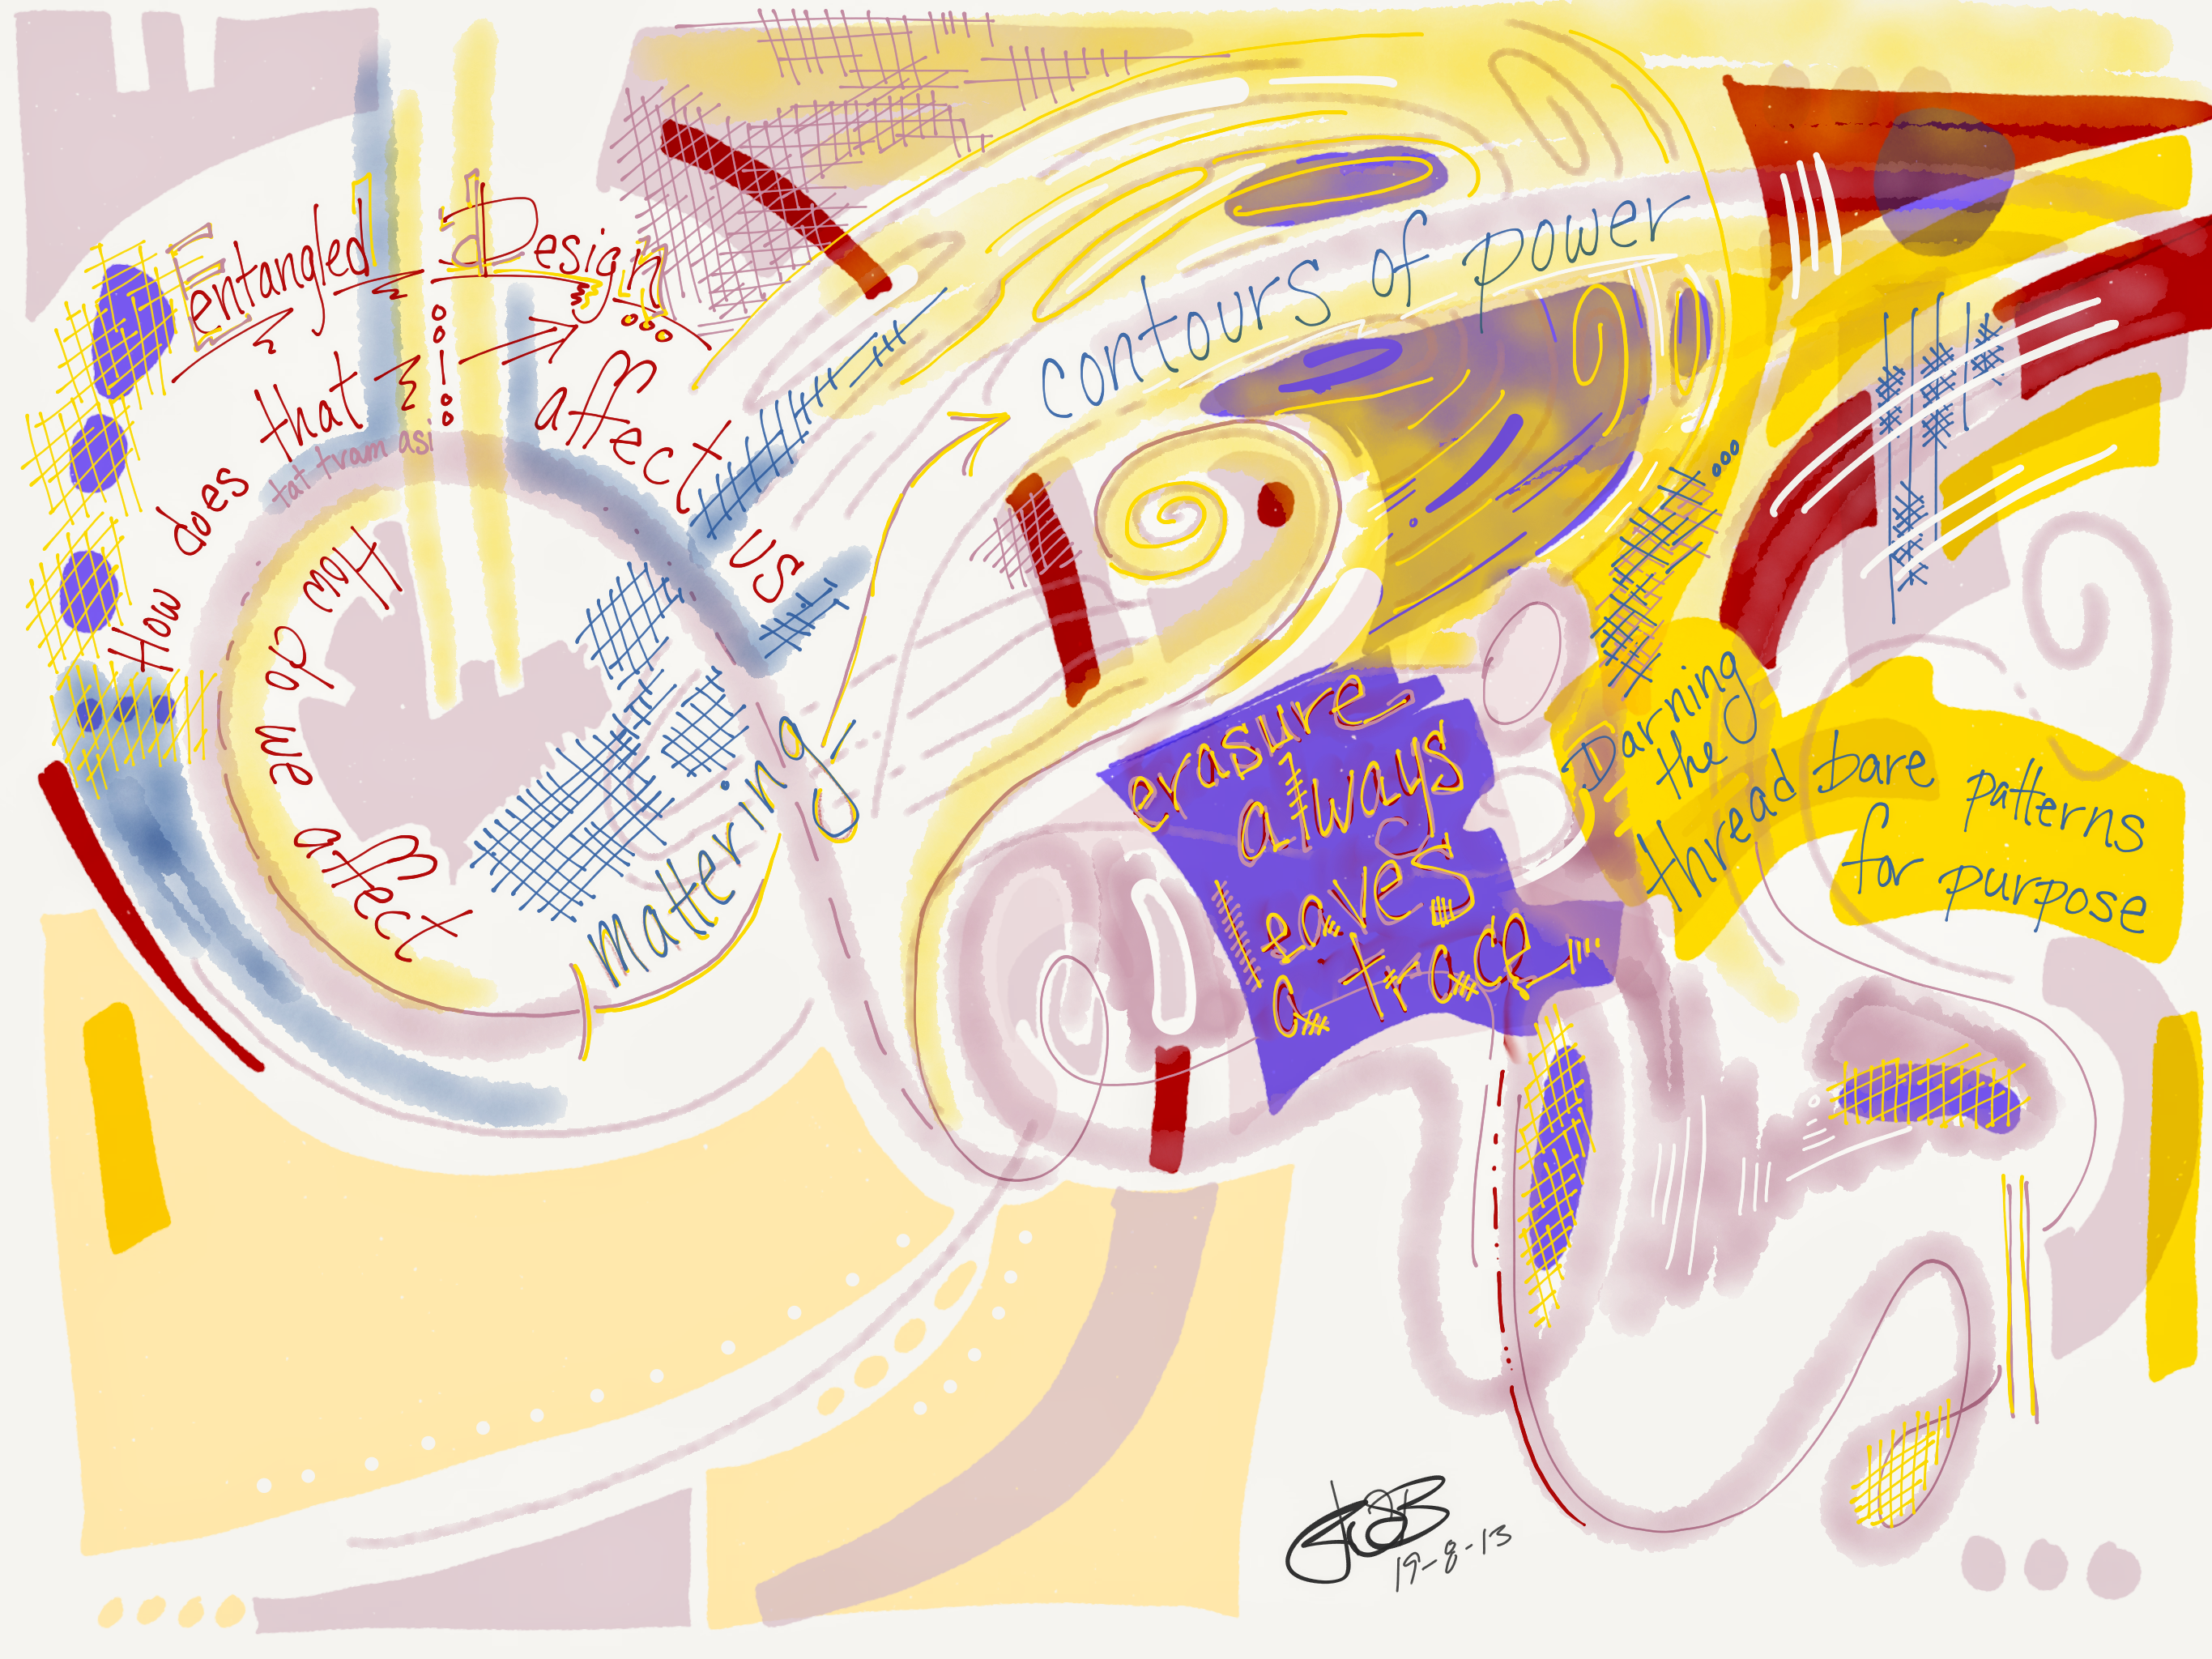 Entangled Design
How does that affect us
tat tvam asi
How do we affect
mattering
contours of power
erasure
always
leaves
a trace
Darning
the
thread bare patterns
for purpose
19-8-13